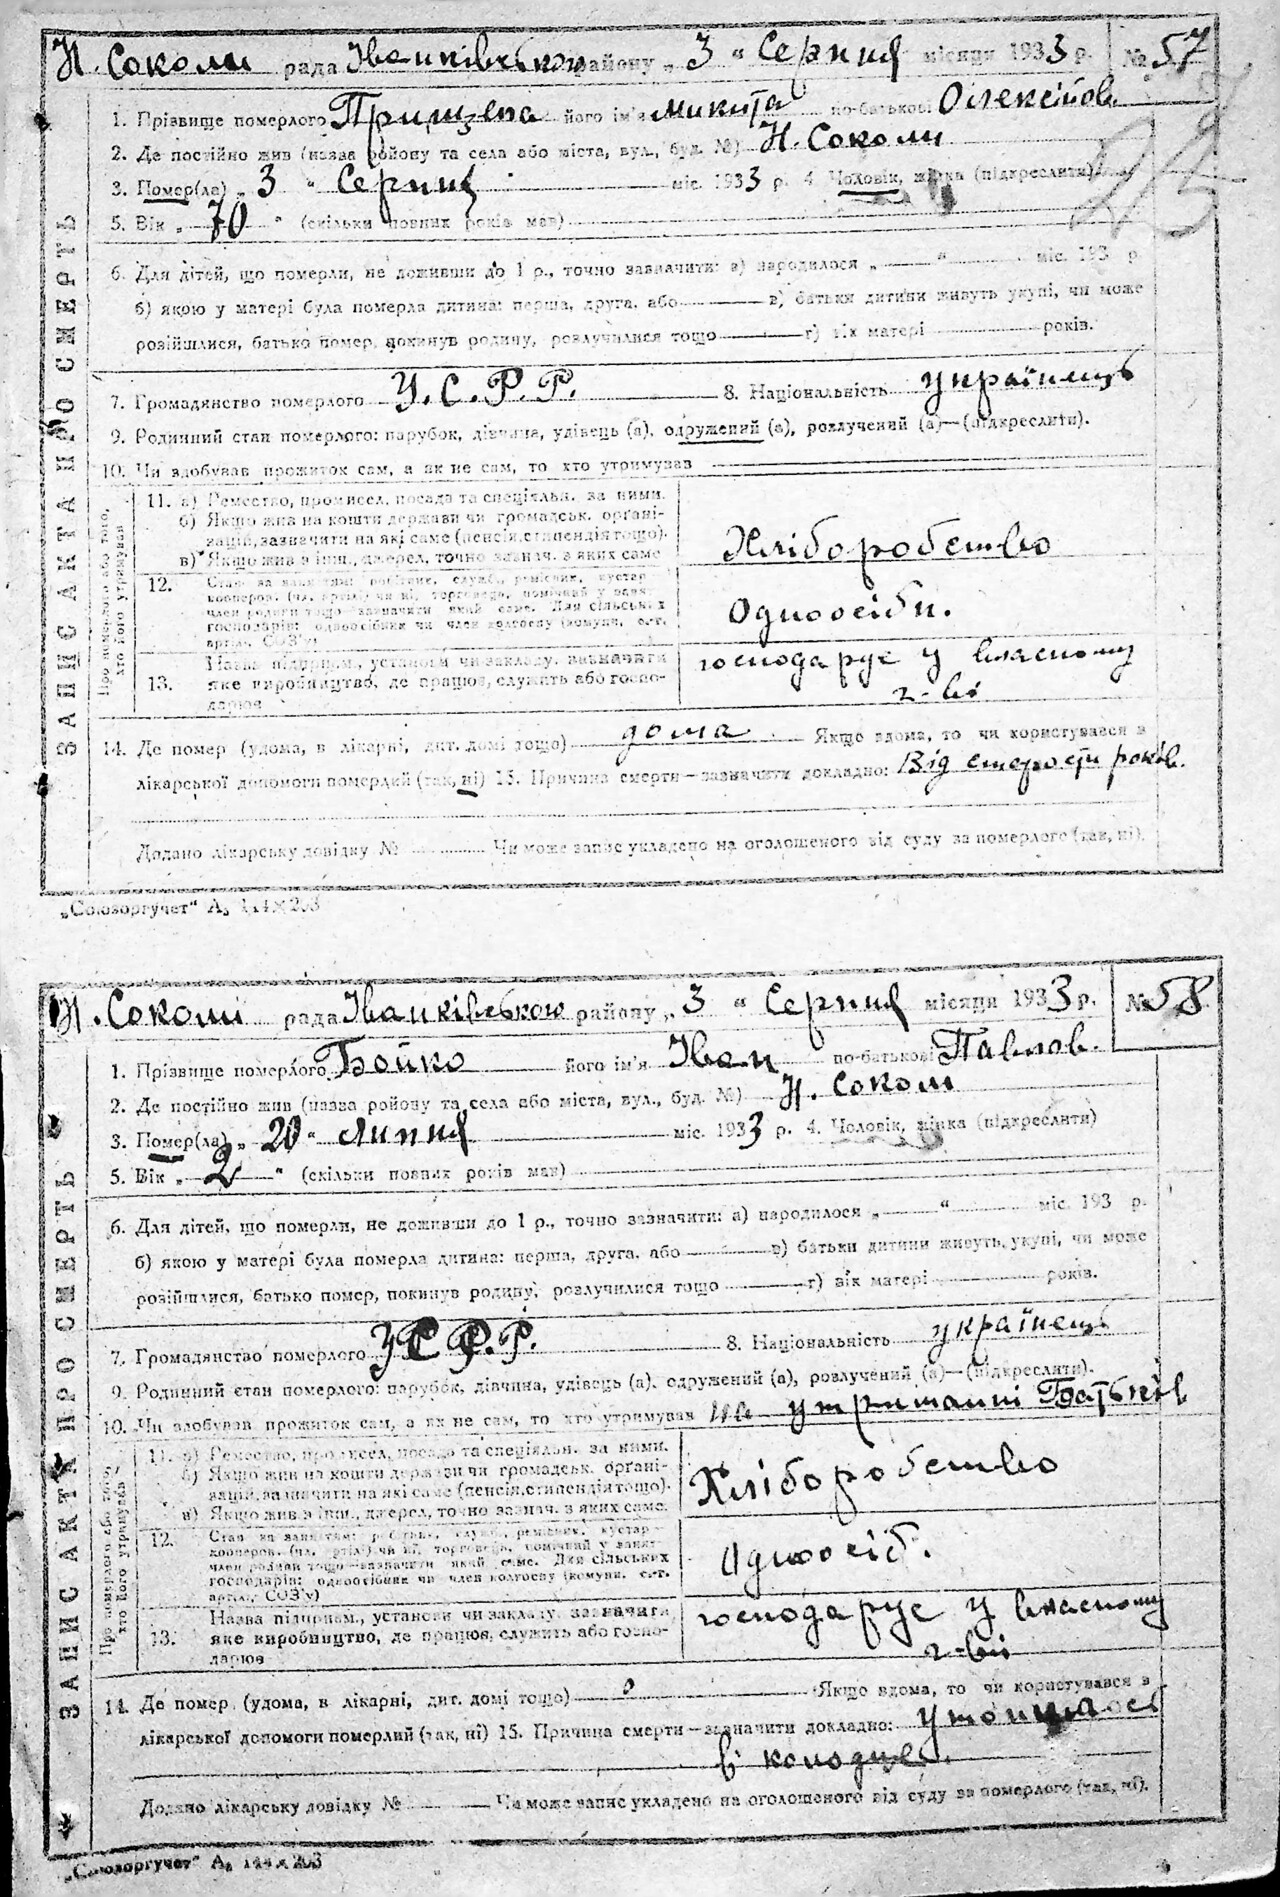 Н. Соколи рада Іванківською району „ 3 “ Серпня місяця 1933 р. № 57
1. Прізвище померлого Прищепа його ім'я Микита по-батькові Олексійов.
2. Де постійно жив (назва району та села або міста, вул., буд. №) Н. Соколи
3. Помер(ла) „ 3 “ Серпня міс. 1933 р. 4. Чоловік, жінка (підкреслити)
5. Вік „ 70 “ (скільки повних років мав)
6. Для дітей, що померли, не доживши до 1 р., точно зазначити: а) народилося „ “ міс. 193 р.
б) якою у матері була померла дитина: перша, друга, або в) батьки дитини живуть укупі, чи може
розійшлися, батько помер, покинув родину, розлучилися тощо г) вік матері років.
7. Громадянство померлого У.С.Р.Р. 8. Національність українець
9. Родинний стан померлого: парубок, дівчина, удівець (а), одружений (а), розлучений (а)—(підкреслити).
10. Чи здобував прожиток сам, а як не сам, то хто утримував
ЗАПИС АКТА ПРО СМЕРТЬ
Про померлого або того, хто його утримував
11. а) Ремество, промисел, посада та спеціяльн. за ними.
б) Якщо жив на кошти держави чи громадськ. орґані-
зацій, зазначити на які саме (пенсія, стипендія тощо).
в) Якщо жив з інш. джерел, точно зазнач. з яких саме
Хліборобство
12. Стан за занятям: робітник, служб., ремісник, кустар
кооперов. (чл. артілі) чи ні, торговець, помічний у занят.
член родини тощо—зазначити який саме. Для сільських
господарів: одноосібник чи член колгоспу (комуни, с.-г.
артілі, СОЗ'у)
Одноосібн.
13. Назва підприєм., установи чи закладу, зазначити
яке виробництво, де працює, служить або госпо-
дарює
господарує у власному
г-ві
14. Де помер (удома, в лікарні, дит. домі тощо) дома Якщо вдома, то чи користувався з
лікарської допомоги померлий (так, ні) 15. Причина смерти—зазначити докладно: Від старости років.
Додано лікарську довідку № Чи може запис укладено на оголошеного від суду за померлого (так, ні).
„Союзоргучет“ А₅ 144×203
Н. Соколи рада Іванківською району „ 3 “ Серпня місяця 1933 р. № 58
1. Прізвище померлого Бойко його ім'я Іван по-батькові Павлов.
2. Де постійно жив (назва району та села або міста, вул., буд. №) Н. Соколи
3. Помер(ла) „ 20 “ липня міс. 1933 р. 4. Чоловік, жінка (підкреслити)
5. Вік „ 2 “ (скільки повних років мав)
6. Для дітей, що померли, не доживши до 1 р., точно зазначити: а) народилося „ “ міс. 193 р.
б) якою у матері була померла дитина: перша, друга, або в) батьки дитини живуть, укупі, чи може
розійшлися, батько помер, покинув родину, розлучилися тощо г) вік матері років.
7. Громадянство померлого УСРР. 8. Національність українець
9. Родинний стан померлого: парубок, дівчина, удівець (а), одружений (а), розлучений (а)—(підкреслити).
10. Чи здобував прожиток сам, а як не сам, то хто утримував на утриманні Батьків
ЗАПИС АКТА ПРО СМЕРТЬ
Про померлого або того, хто його утримував
11. а) Ремество, промисел, посада та спеціяльн. за ними.
б) Якщо жив на кошти держави чи громадськ. орґані-
зацій, зазначити на які саме (пенсія, стипендія тощо).
в) Якщо жив з інш. джерел, точно зазнач. з яких саме.
Хліборобство
12. Стан за занятям: робітник, служб., ремісник, кустар—
кооперов. (чл. артілі) чи ні, торговець, помічний у занят.
член родини тощо—зазначити який саме. Для сільських
господарів: одноосібник чи член колгоспу (комуни, с.-г.
артілі, СОЗ'у)
Одноосіб.
13. Назва підприєм., установи чи закладу, зазначити
яке виробництво, де працює, служить або госпо-
дарює
господарує у власному
г-ві
14. Де помер (удома, в лікарні, дит. домі тощо) Якщо вдома, то чи користувався з
лікарської допомоги померлий (так, ні) 15. Причина смерти—зазначити докладно: утопилась
в колодцеві.
Додано лікарську довідку № Чи може запис укладено на оголошеного від суду за померлого (так, ні).
„Союзоргучет“ А₅ 144×203